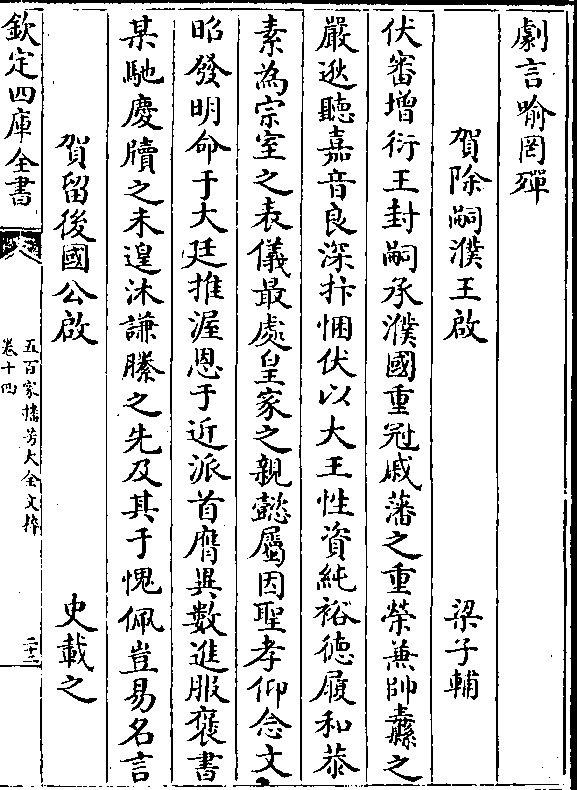 劇言喻罔殫
賀除嗣濮王啟 梁子輔
伏審增衍王封嗣承濮國重冠戚藩之重榮兼帥纛之
嚴逖聽嘉音良深抃悃伏以大王性資純裕徳履和恭
素為宗室之表儀最處皇家之親懿屬因聖孝仰念文
昭發明命于大廷推渥恩于近派首膺異數進服褒書
某馳慶牘之未遑沐謙縢之先及其于愧佩豈易名言
賀留後國公啟 史載之
欽定四庫全書
五百家播芳大全文粹
卷十四
二十三